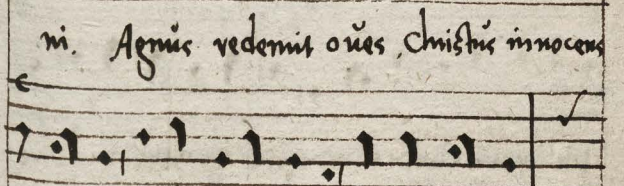 ni. Agnus redemit oves, Christus innocens